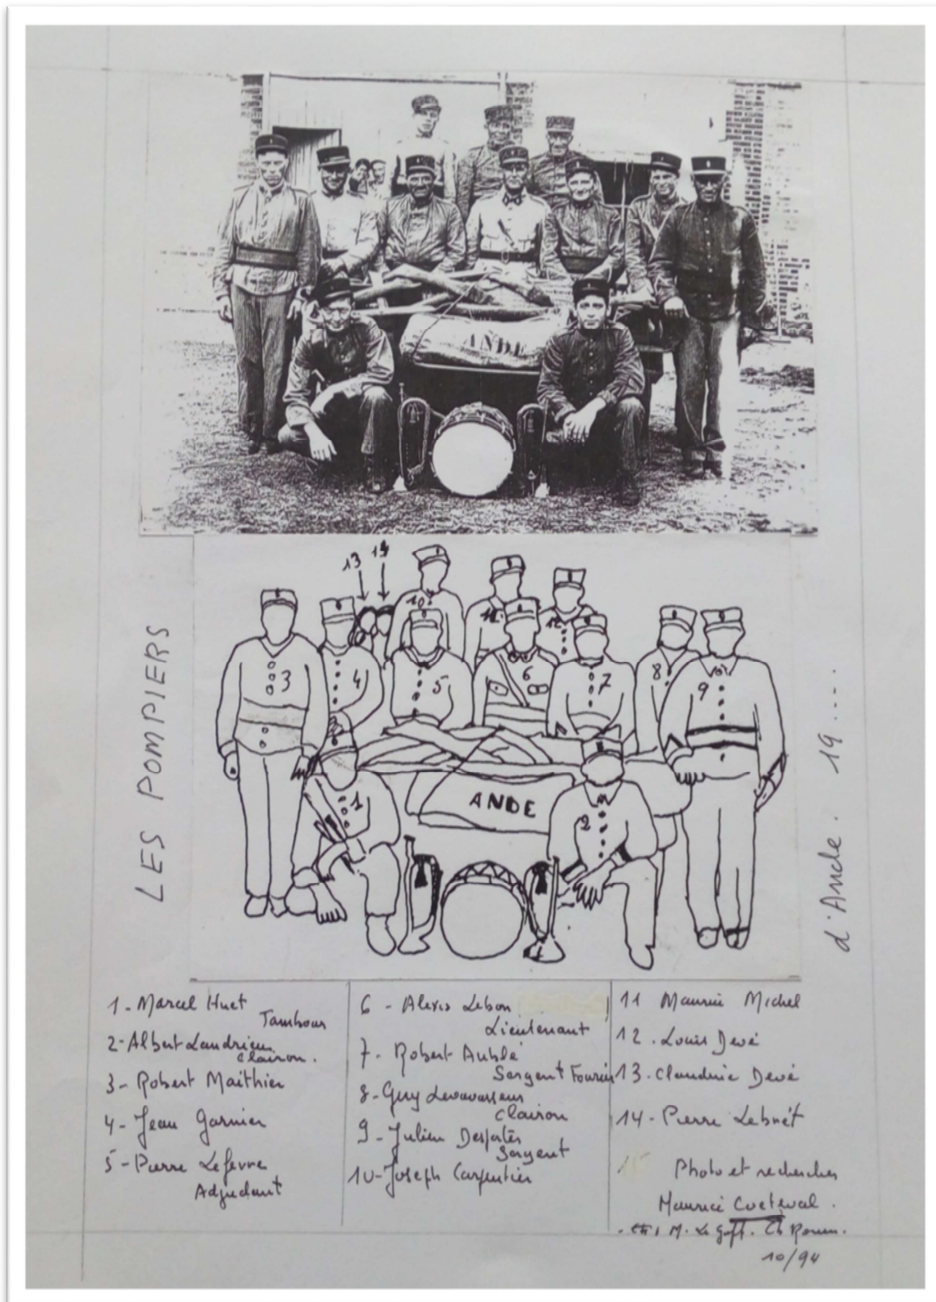 ANDE
13 14
10
11
12
3
4
5
6
7
8
9
ANDE
1
2
LES POMPIERS
d'Ande. 19....
1 - Marcel Huet
Tambour
2 - Albert Landrieu
Clairon.
3 - Robert Maithier
4 - Jean Garnier
5 - Pierre Lefevre
Adjudant
6 - Alexis Lebon
Lieutenant
7 - Robert Aublé
Sergent Fourrier
8 - Guy Levavasseur
Clairon
9 - Julien Desportes
Sergent
10 - Joseph Carpentier
11 Maurice Michel
12 . Louis Devé
13 . Claudine Devé
14 - Pierre Lebret
Photo et recherches
Maurice
M. Le Goff. Rouen.
10/94